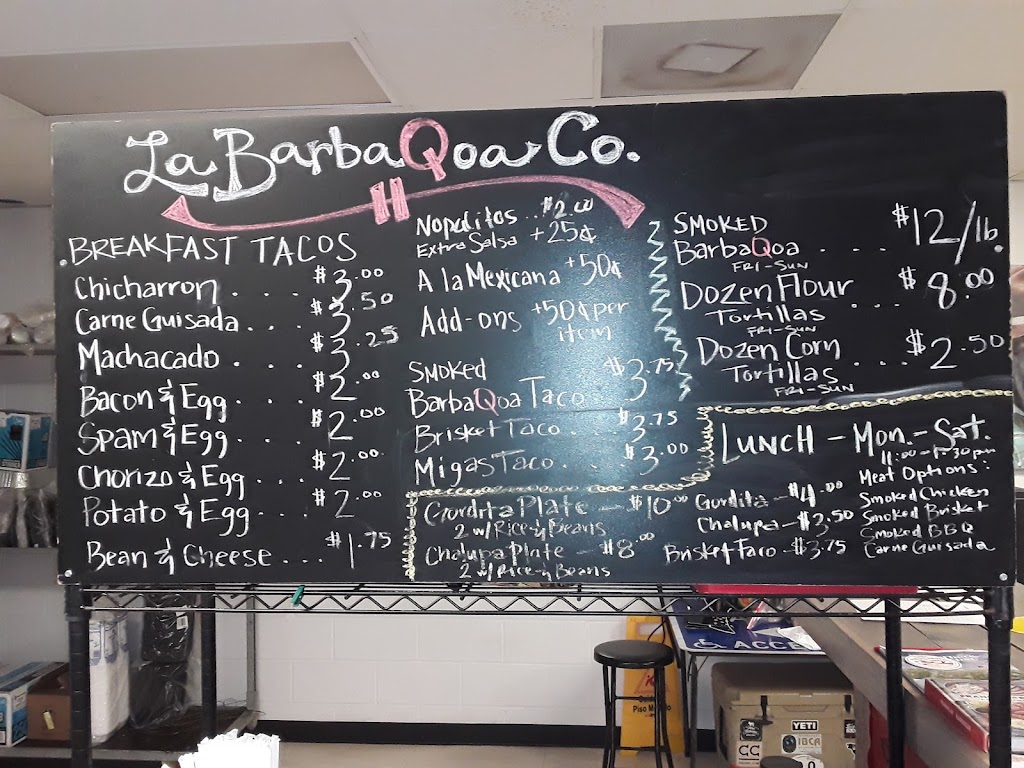 La BarbaQoa Co.
BREAKFAST TACOS
Chicharron.... $3.00
Carne Guisada... $3.50
Machacado.... $3.25
Bacon & Egg... $2.00
Spam & Egg... $2.00
Chorizo & Egg... $2.00
Potato & Egg... $2.00
Bean & Cheese... $1.75
Nopalitos.. $2.00
Extra Salsa +25¢
A la Mexicana +50¢
Add-ons +50¢ per
item
SMOKED $3.75
BarbaQoa Taco
Brisket Taco.. $3.75
Migas Taco.... $3.00
Gordita Plate - $10.00
2 w/ Rice & Beans
Chalupa Plate - $8.00
2 w/ Rice & Beans
SMOKED
BarbaQoa.... $12/lb
FRI-SUN
Dozen Flour
Tortillas... $8.00
FRI-SUN
Dozen Corn
Tortillas... $2.50
FRI-SUN
LUNCH - Mon.-Sat.
Meat Options:
Smoked Chicken
Smoked Brisket
Smoked BBQ
Carne Guisada
Gordita - $4.00
Chalupa - $3.50
Brisket Taco -- $3.75
ACCE
Piso Mo
YETI
IBCA